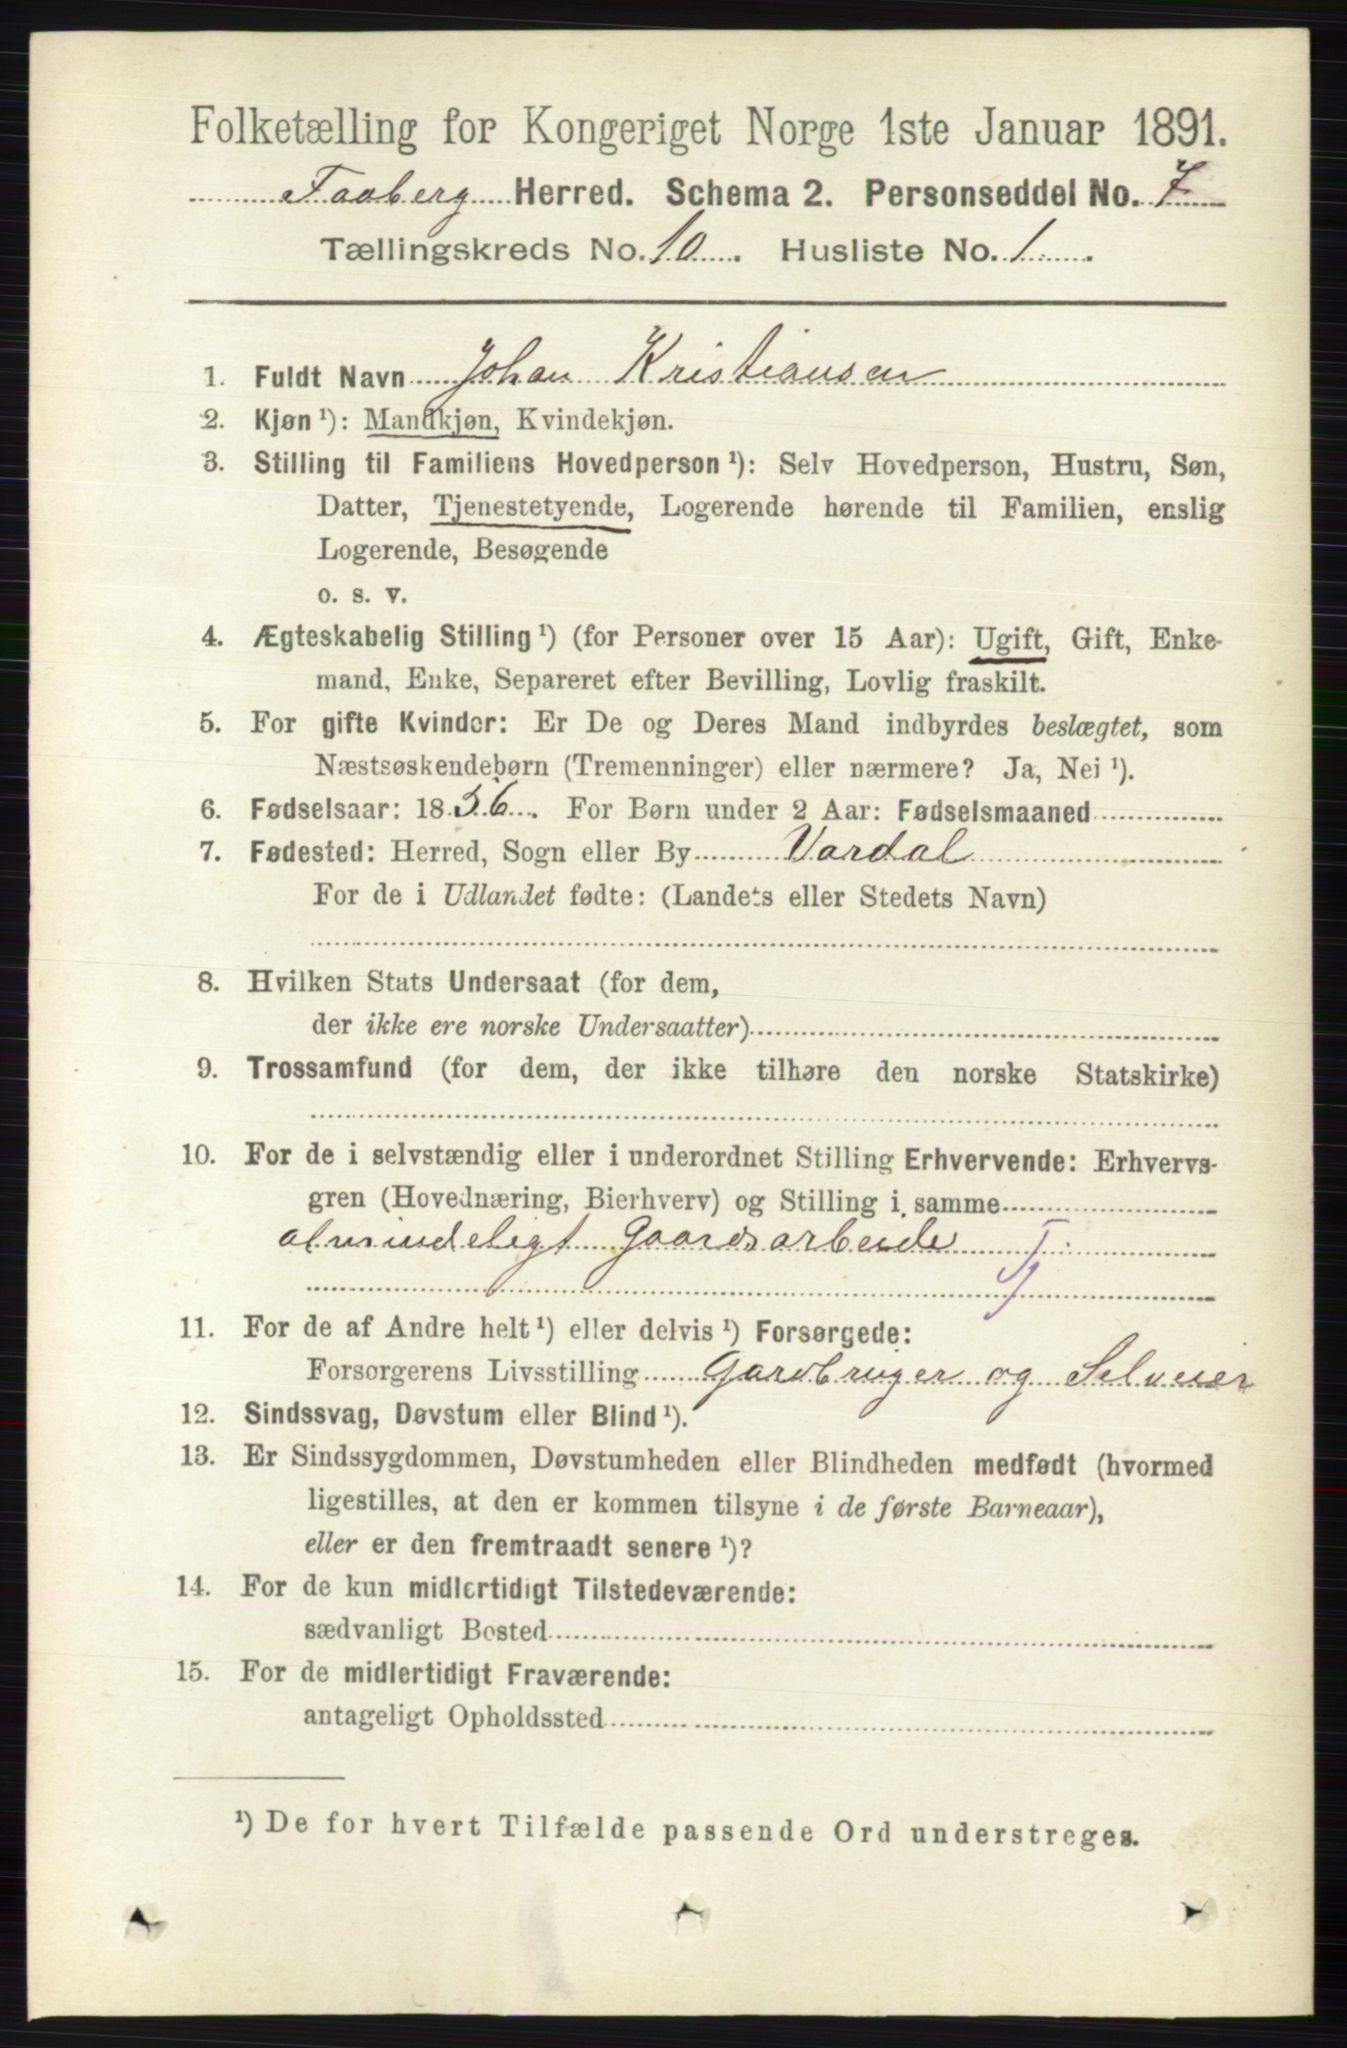 Folketælling for Kongeriget Norge 1ste Januar 1891.
Faaberg Herred. Schema 2. Personseddel No. 7
Tællingskreds No. 10. Husliste No. 1
1. Fuldt Navn Johan Kristiansen
2. Kjøn ¹): Mandkjøn, Kvindekjøn.
3. Stilling til Familiens Hovedperson ¹): Selv Hovedperson, Hustru, Søn,
Datter, Tjenestetyende, Logerende hørende til Familien, enslig
Logerende, Besøgende
o. s. v.
4. Ægteskabelig Stilling ¹) (for Personer over 15 Aar): Ugift, Gift, Enke-
mand, Enke, Separeret efter Bevilling, Lovlig fraskilt.
5. For gifte Kvinder: Er De og Deres Mand indbyrdes beslægtet, som
Næstsøskendebørn (Tremenninger) eller nærmere? Ja, Nei ¹).
6. Fødselsaar: 1836. For Børn under 2 Aar: Fødselsmaaned
7. Fødested: Herred, Sogn eller By Vardal
For de i Udlandet fødte: (Landets eller Stedets Navn)
8. Hvilken Stats Undersaat (for dem,
der ikke ere norske Undersaatter)
9. Trossamfund (for dem, der ikke tilhøre den norske Statskirke)
10. For de i selvstændig eller i underordnet Stilling Erhvervende: Erhvervs-
gren (Hovednæring, Bierhverv) og Stilling i samme
almindeligt Gaardsarbeide Tj
11. For de af Andre helt ¹) eller delvis ¹) Forsørgede:
Forsørgerens Livsstilling Gardbruger og Selveier
12. Sindssvag, Døvstum eller Blind ¹).
13. Er Sindssygdommen, Døvstumheden eller Blindheden medfødt (hvormed
ligestilles, at den er kommen tilsyne i de første Barneaar),
eller er den fremtraadt senere ¹)?
14. For de kun midlertidigt Tilstedeværende:
sædvanligt Bosted
15. For de midlertidigt Fraværende:
antageligt Opholdssted
¹) De for hvert Tilfælde passende Ord understreges.